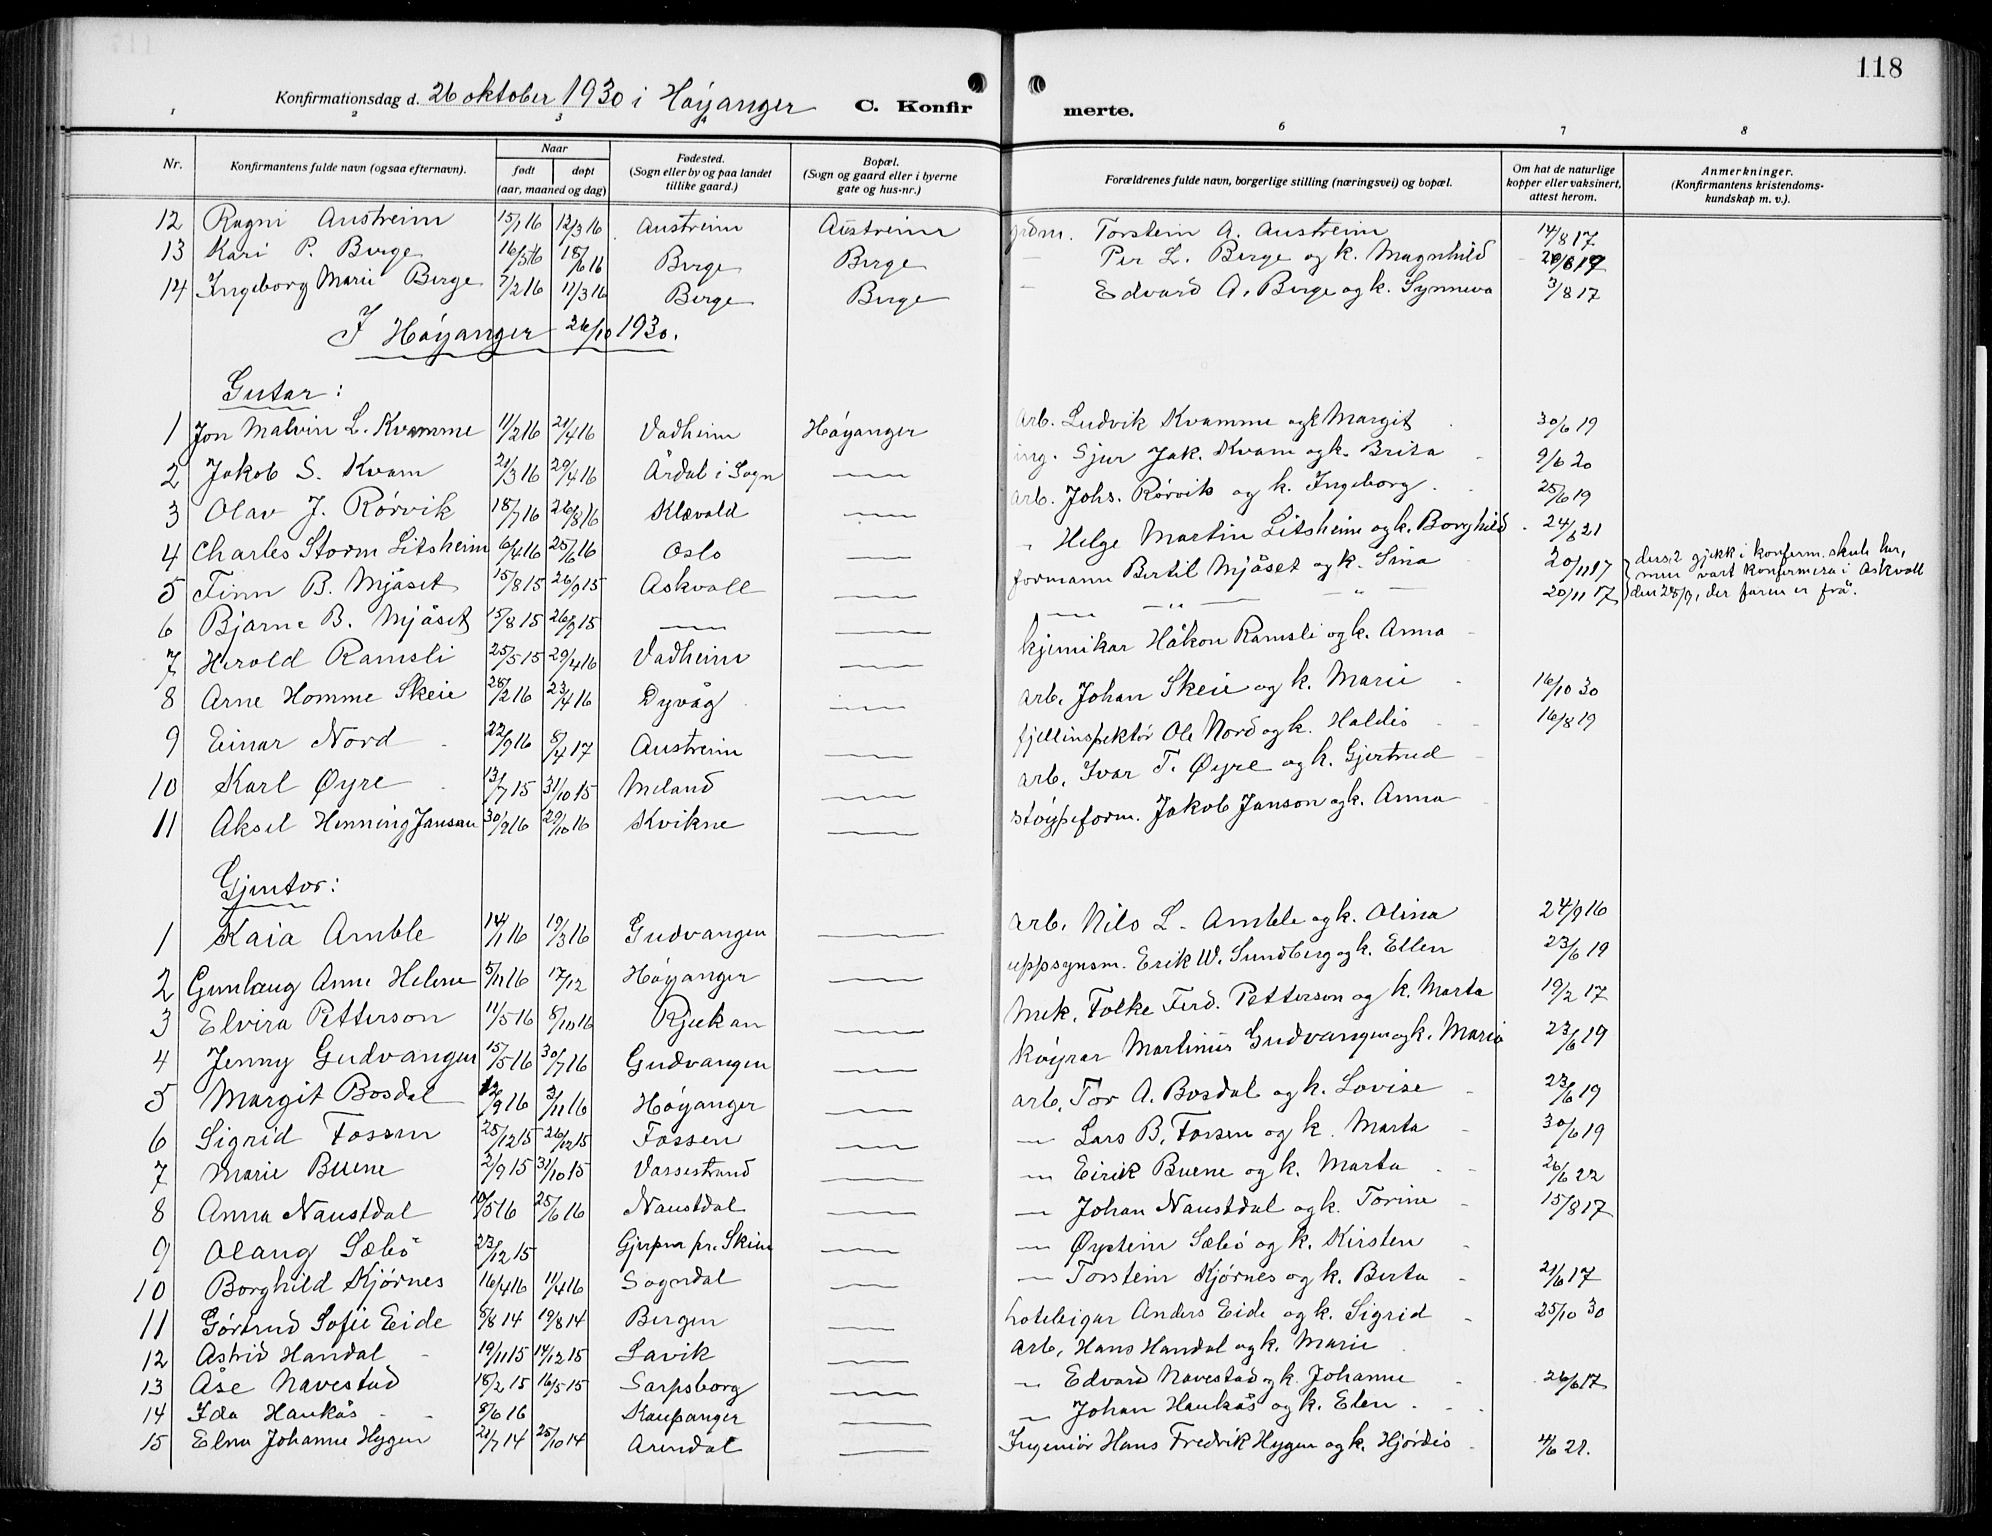 118
Konfirmationsdag d. 26 oktober 1930 i Høyanger C. Konfirmerte.
1 2 3 4 6 7 8
Nr. Konfirmantens fulde navn (ogsaa efternavn). Naar født døpt (aar, maaned og dag) Fødested. (Sogn eller by og paa landet tillike gaard.) Bopæl. (Sogn og gaard eller i byerne gate og hus-nr.) Forældrenes fulde navn, borgerlige stilling (næringsvei) og bopæl. Om hat de naturlige kopper eller vaksinert, attest herom. Anmerkninger. (Konfirmantens kristendomskundskap m. v.).
12 Ragni Austreim 15/1 16 12/3 16 Austreim Austreim grdm. Torstein A. Austreim 14/8 17
13 Kari P. Berge 16/5 16 18/6 16 Berge Berge — Per L. Berge og k. Magnhild
14 Ingeborg Marie Berge 7/2 16 11/3 16 Berge Berge — Edvard A. Berge og k. Synneva 3/8 17
I Høyanger 26/10 1930.
Gutar:
1 Jon Malvin L. Kvamme 11/2 16 21/4 16 Vadheim Høyanger arb. Ludvik Kvamme og k Margit 30/6 19
2 Jakob S. Kvam 21/3 16 29/4 16 Årdal i Sogn — ing. Sjur Jak. Kvam og k. Brita 9/6 20
3 Olav J. Rørvik 18/7 16 26/8 16 Klævold — arb. Johs. Rørvik og k. Ingeborg 25/6 19
4 Charles Storm Litsheim 6/4 16 25/6 16 Oslo — „ Helge Martin Litsheim og k. Borghild 24/6 21
5 Finn B. Mjåset 15/8 15 26/9 15 Askvoll — formann Bertil Mjåset og k. Sina 20/11 17 desse 2 gjekk i konferm. skule her,
men vart konfirmera i Askvoll
6 Bjarne B. Mjåset 15/8 15 26/9 15 — — — „ — „ — 20/11 17 den 28/9, der faren er frå.
7 Herold Ramsli 25/5 15 29/4 16 Vadheim — kjemikar Håkon Ramsli og k. Anna
8 Arne Homme Skeie 28/2 16 23/4 16 Dyvåg — arb. Johan Skeie og k. Marie 16/10 30
9 Einar Nord 22/9 16 8/4 17 Austreim — fjellinspektør Ole Nord og k. Haldis 16/8 19
10 Karl Øyre 13/7 15 31/10 15 Meland — arb. Ivar T. Øyre og k. Gjertrud
11 Aksel Henning Janson 30/9 16 29/10 16 Kvikne — støypeform. Jakob Janson og k. Anna
Gjentor:
1 Kaia Amble 14/1 16 19/3 16 Gudvangen — arb. Nils L. Amble og k. Olina 24/9 16
2 Gunlaug Anne Helene 5/11 16 17/12 Høyanger — uppsynsm. Erik W. Sundberg og k. Ellen 23/6 19
3 Elvira Petterson 11/5 16 8/10 16 Rjukan — mek. Folke Ferd. Petterson og k. Marta 19/2 17
4 Jenny Gudvangen 15/5 16 30/7 16 Gudvangen — køyrar Martinus Gudvangen og k. Maria 23/6 19
5 Margit Bosdal 12/9 16 3/11 16 Høyanger — arb. Tor A. Bosdal og k. Lovise 23/6 19
6 Sigrid Fossen 25/12 15 26/12 15 Fossen — — Lars B. Fossen og k. Marta 30/6 19
7 Marie Buene 2/9 15 31/10 15 Vassestrand — — Eirik Buene og k. Marta 26/6 22
8 Anna Naustdal 10/5 16 25/6 16 Naustdal — — Johan Naustdal og k. Torine 15/8 17
9 Olaug Sæbö 23/12 15 Gjerpen pr. Skien — — Øystein Sæbö og k. Kirsten
10 Borghild Kjørnes 16/4 16 11/4 16 Sogndal — — Torstein Kjørnes og k. Berta 21/6 17
11 Gørtrud Sofie Eide 8/8 14 19/8 14 Bergen — hoteleigar Anders Eide og k. Sigrid 25/10 30
12 Astrid Handal 19/11 15 14/12 15 Lavik — arb. Hans Handal og k. Marie
13 Åse Navestad 18/2 15 16/5 15 Sarpsborg — — Edvard Navestad og k. Johanne 26/6 17
14 Ida Haukås 8/6 16 Kaupanger — — Johan Haukås og k. Elen
15 Elna Johanne Hygen 21/7 14 25/10 14 Arendal — Ingeniør Hans Fredrik Hygen og k. Hjørdis 4/6 21.